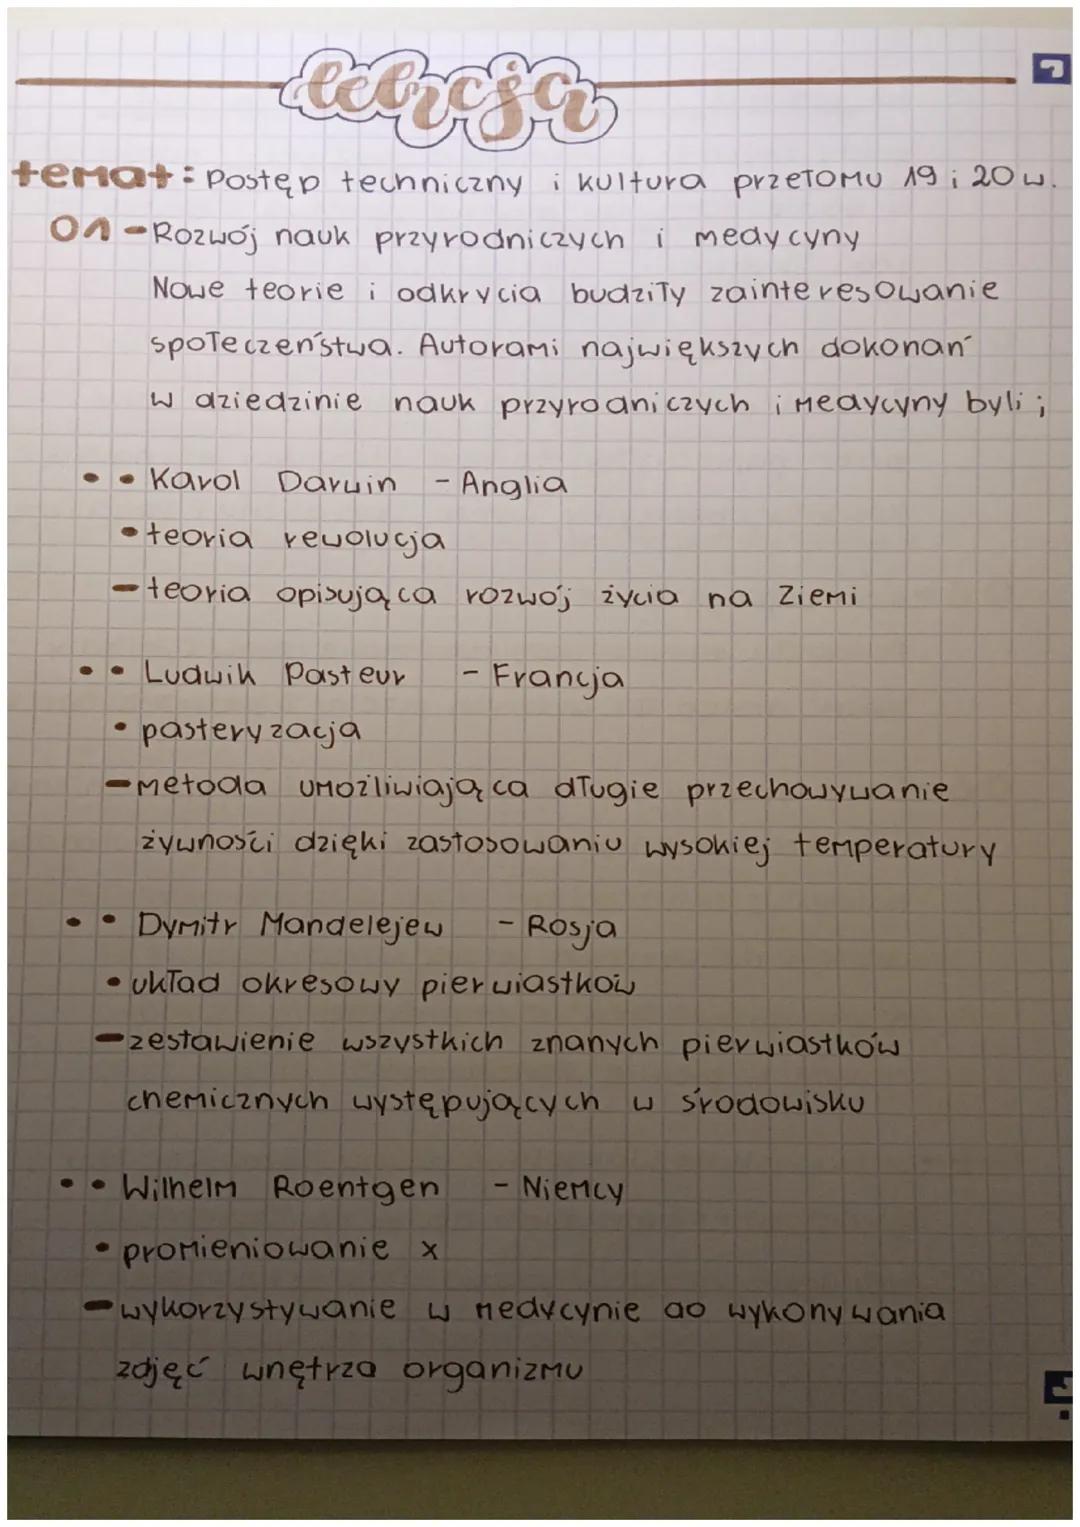 lekcja
temat: Postęp techniczny i kultura przełomu 19 i 20 w.
01 - Rozwój nauk przyrodniczych i medycyny
Nowe teorie i odkrycia budziły zainteresowanie
społeczeństwa. Autorami największych dokonań
w dziedzinie nauk przyrodniczych i medycyny byli;
• • Karol Darwin - Anglia
• teoria rewolucja
- teoria opisująca rozwój życia na Ziemi
• • Ludwik Pasteur - Francja
• pasteryzacja
- metoda umożliwiająca długie przechowywanie
żywności dzięki zastosowaniu wysokiej temperatury
• • Dymitr Mandelejew - Rosja
• układ okresowy pierwiastków
- zestawienie wszystkich znanych pierwiastków
chemicznych występujących w środowisku
• • Wilhelm Roentgen - Niemcy
• promieniowanie x
- wykorzystywanie w medycynie do wykonywania
zdjęć wnętrza organizmu